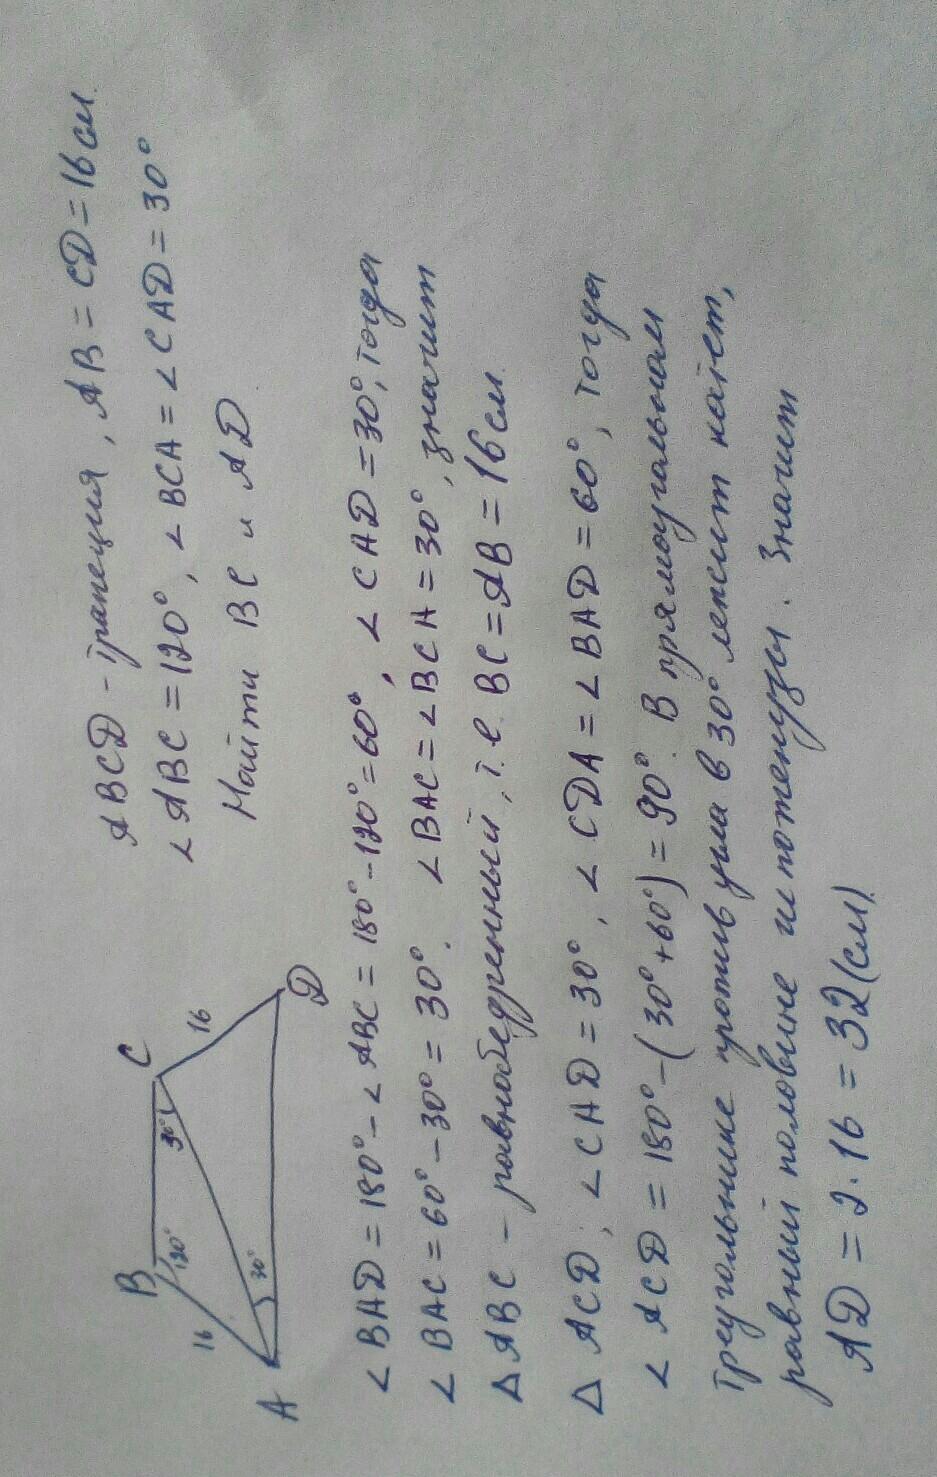 ABCD - трапеция, AB = CD = 16 см
∠ABC = 120°, ∠BCA = ∠CAD = 30°
Найти BC и AD
B
C
16
120°
30°
16
30°
A
D
∠BAD = 180° - ∠ABC = 180° - 120° = 60°, ∠CAD = 30°, тогда
∠BAC = 60° - 30° = 30°. ∠BAC = ∠BCA = 30°, значит
△ABC - равнобедренный, т.е. BC = AB = 16 см.
△ACD; ∠CAD = 30°, ∠CDA = ∠BAD = 60°, тогда
∠ACD = 180° - (30° + 60°) = 90°. В прямоугольном
треугольнике против угла в 30° лежит катет,
равный половине гипотенузы. Значит
AD = 2 · 16 = 32 (см)